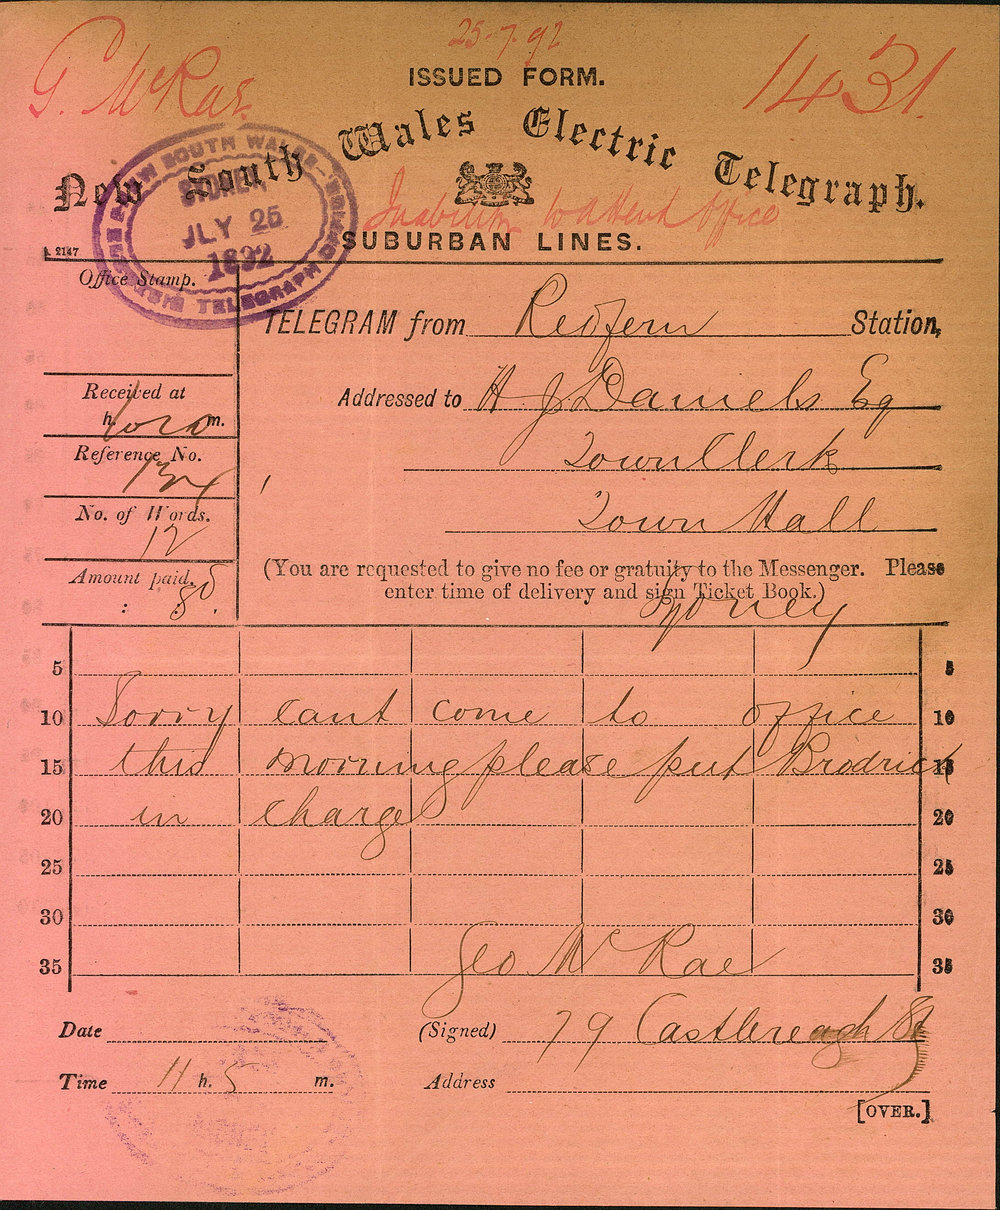 25-7-92
G. McRae.
1431.
ISSUED FORM.
New South Wales Electric Telegraph.
Inability to attend Office
SUBURBAN LINES.
2147
SOUTH WALES
SYDNEY
JLY 25
1892
ELECTRIC TELEGRAPH
Office Stamp.
TELEGRAM from Redfern Station,
Received at
h. m.
Addressed to H J Daniels Esq
Reference No.
Town Clerk
No. of Words.
12
Town Hall
Amount paid.
(You are requested to give no fee or gratuity to the Messenger. Please
enter time of delivery and sign Ticket Book.)
Sydney
5 5
10 Sorry cant come to office 10
15 this morning please put Brodrick 15
20 in charge 20
25 25
30 30
35 Geo McRae 35
Date
(Signed) 79 Castlereagh St
Time 11 h. 5 m.
Address
[OVER.]